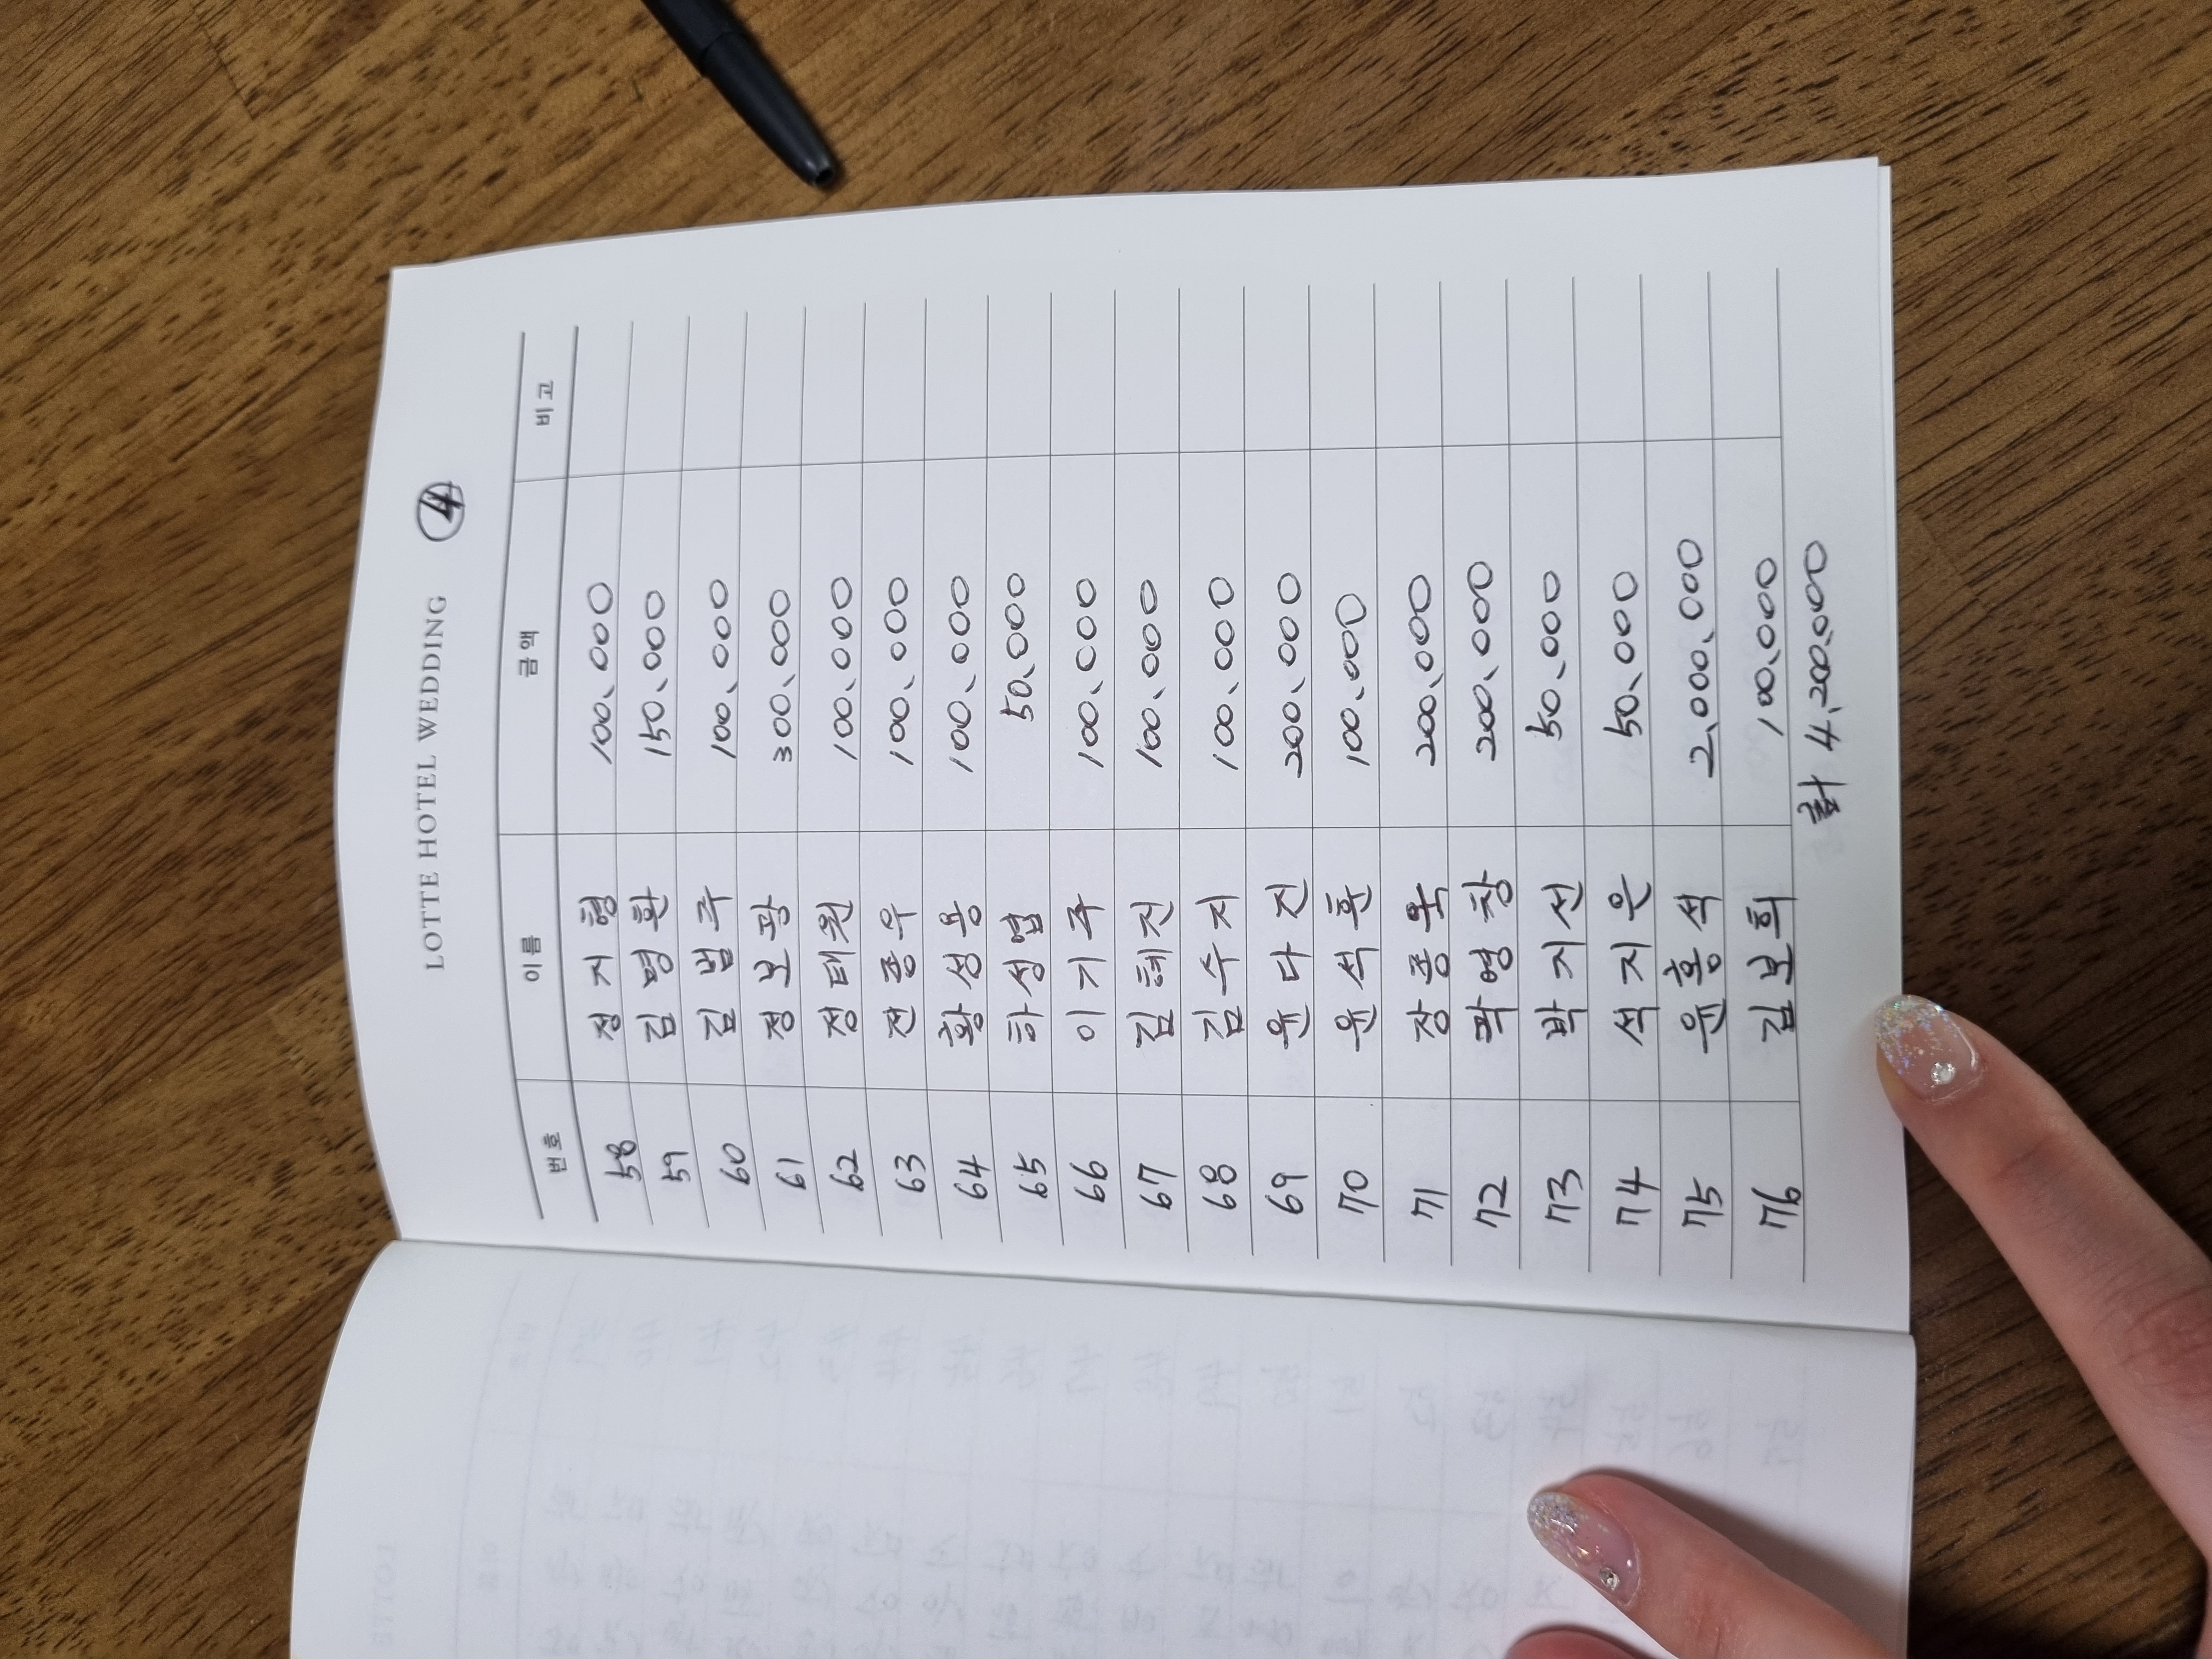 LOTTE HOTEL WEDDING ④
번호 이름 금액 비고
58 정지형 100,000
59 김명환 150,000
60 김범주 100,000
61 정보광 300,000
62 정태원 100,000
63 전종우 100,000
64 황성용 100,000
65 하성엽 50,000
66 이기주 100,000
67 김혜진 100,000
68 김수지 100,000
69 윤다진 200,000
70 윤석훈 100,000
71 장종욱 200,000
72 곽영창 200,000
73 박지선 50,000
74 석지은 50,000
75 윤홍석 2,000,000
76 김보희 100,000
計 4,200,000